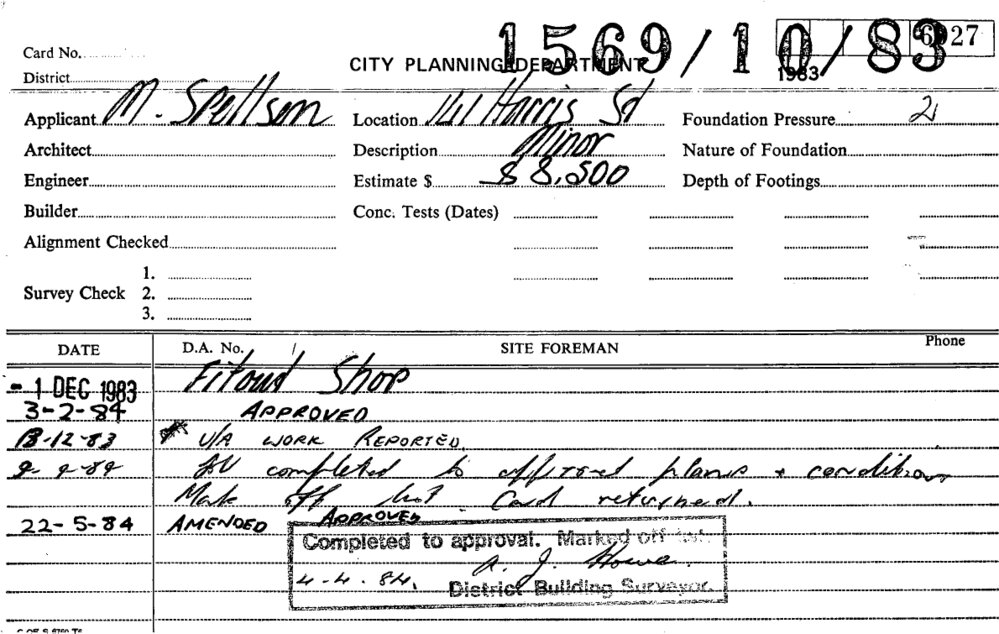 1569/10/83
6027
Card No.
CITY PLANNING DEPARTMENT
1983
District
Applicant M. Spellson Location 141 Harris St Foundation Pressure 2
Architect Description Minor Nature of Foundation
Engineer Estimate $ $ 8,500 Depth of Footings
Builder Conc. Tests (Dates)
Alignment Checked
1.
Survey Check 2.
3.
DATE D.A. No. SITE FOREMAN Phone
- 1 DEC 1983 Fitout Shop
3-2-84 APPROVED
13-12-83 * U/A WORK REPORTED.
completed to approved plans + conditions
Mark off list. Card returned.
22-5-84 AMENDED APPROVED
Completed to approval. Marked off list.
4-4-84. A. J. Howe.
District Building Surveyor.